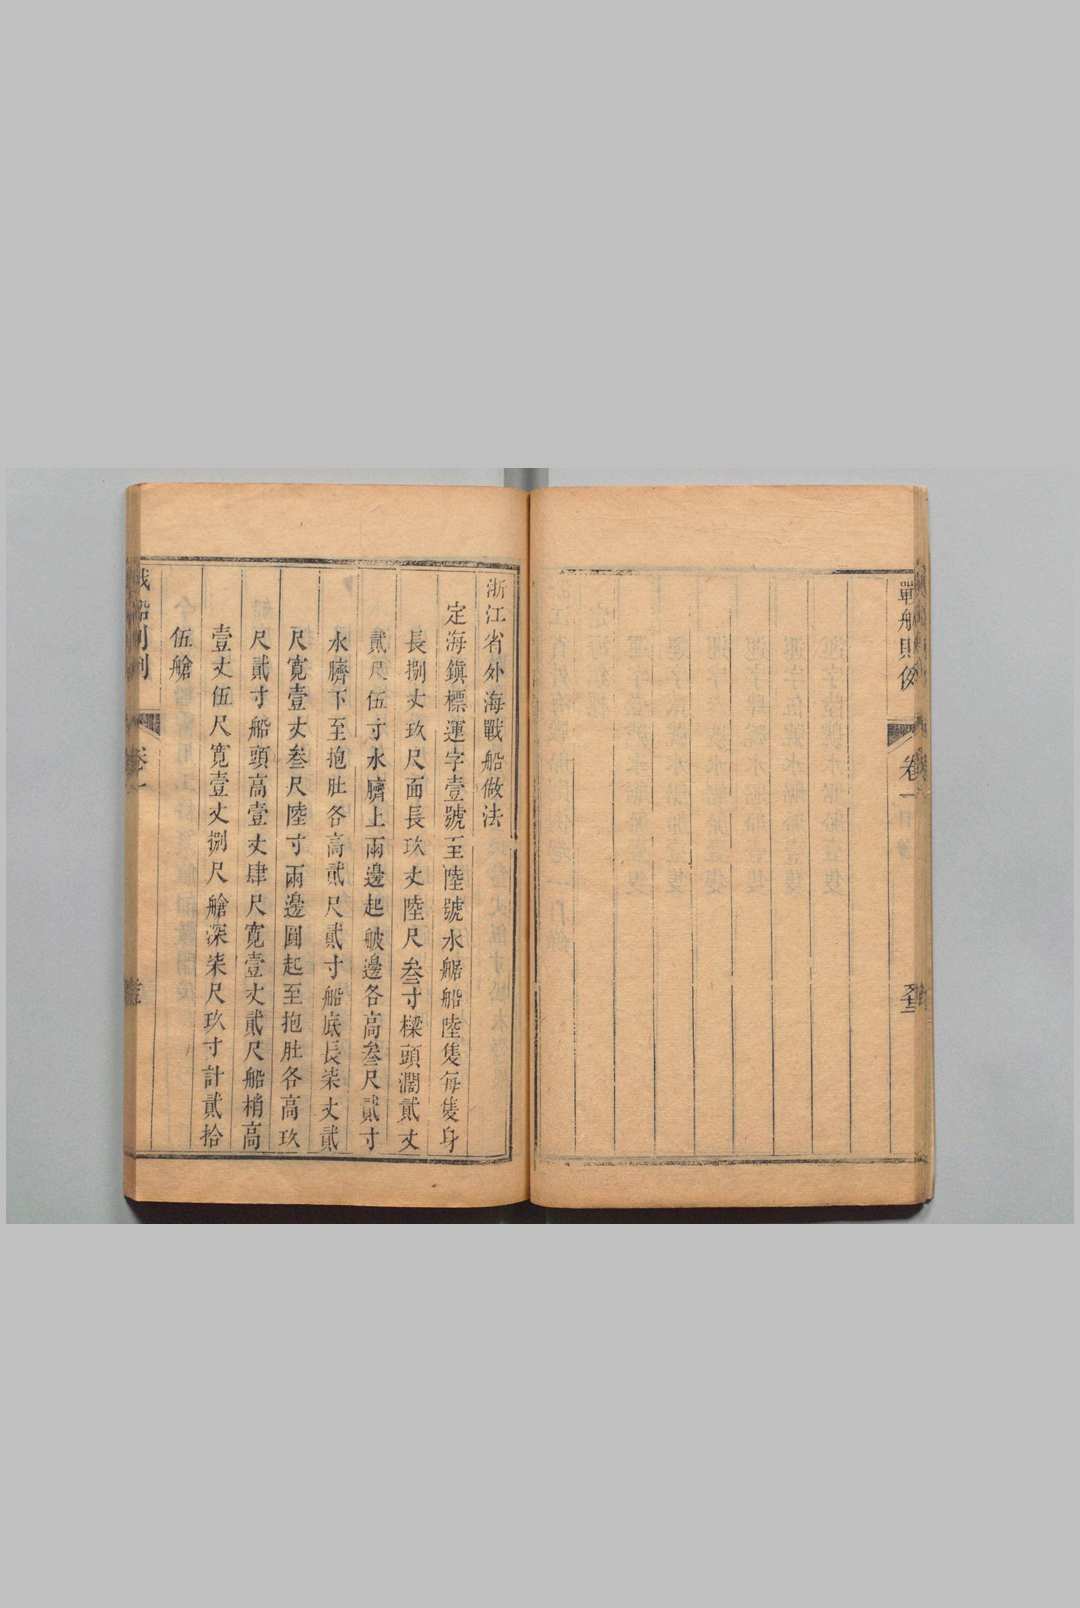 戰船則例
卷一
浙江省外海戰船做法
定海鎮標運字壹號至陸號水艍船陸隻每隻身
長捌丈玖尺面長玖丈陸尺叁寸樑頭濶貳丈
貳尺伍寸水臍上兩邊起𦨭邊各高叁尺貳寸
水臍下至抱肚各高貳尺貳寸船底長柒丈貳
尺寬壹丈叁尺陸寸兩邊圓起至抱肚各高玖
尺貳寸船頭高壹丈肆尺寬壹丈貳尺船梢高
壹丈伍尺寬壹丈捌尺艙深柒尺玖寸計貳拾
伍艙
戰船則例
卷一